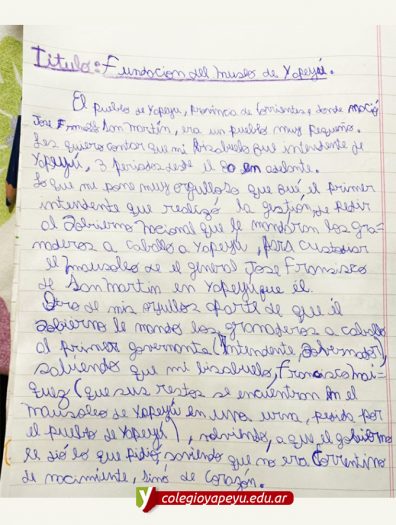 Titulo: Fundacion del museo de Yapeyú.
El pueblo de Yapeyu, provincia de Corrientes, donde nació
Jose Francisco San Martin, era un pueblo muy pequeño.
Les quiero contar que mi bisabuelo fue intendente de
Yapeyú, 3 periodos desde el 80 en adelante.
Lo que me pone muy orgulloso que fué el primer
intendente que realizó la gestión, de pedir
al Gobierno Nacional que le mandaran los gra-
naderos a caballo a Yapeyú, para custodiar
el Mausoleo de el general Jose Francisco
de San Martin en Yapeyú que él.
Otro de mis orgullos aparte de que él
gobierno le mando los granaderos a caballo
al primer governante (Intendente, Gobernador),
saviendo que mi bisabuelo, Francisco Mai-
quez (que sus restos se encuentran en el
Mausoleo de Yapeyú en una urna, pedida por
el pueblo de Yapeyú), volviendo, a que el gobierno
le dió lo que pidió saviendo que no era Correntino
de nacimiento, sinó de Corazón.
colegioyapeyu.edu.ar